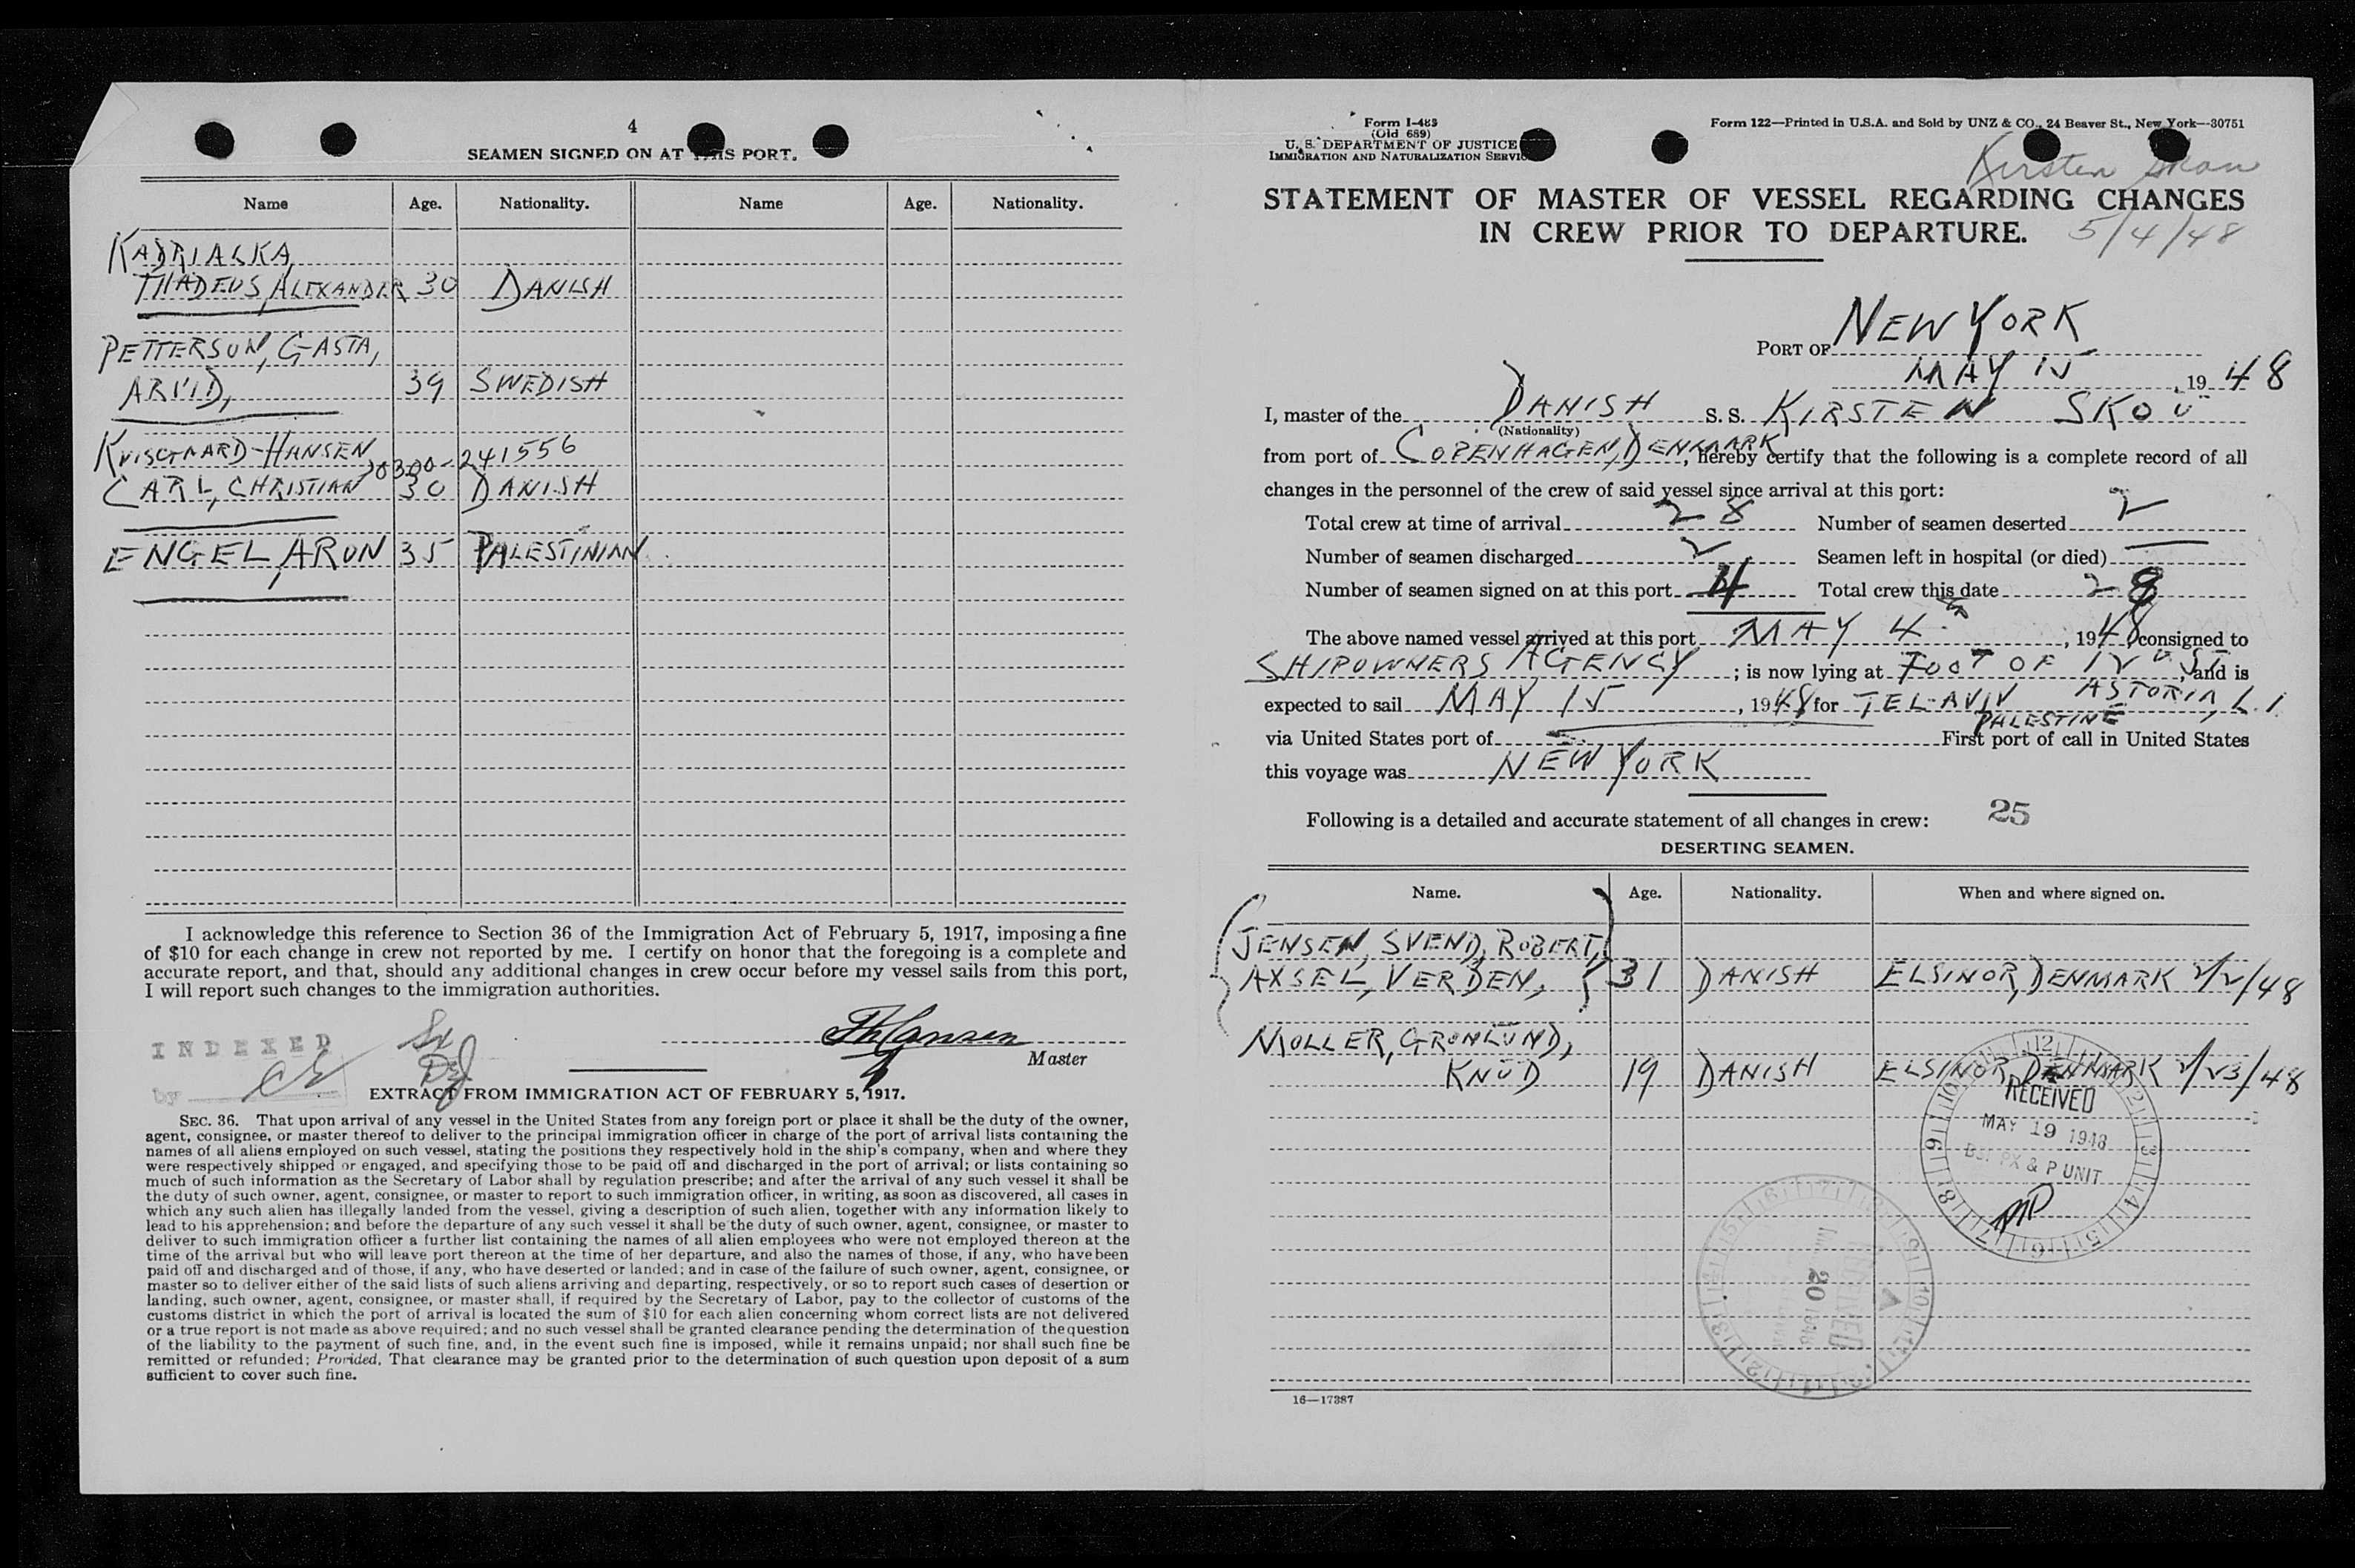 4
SEAMEN SIGNED ON AT THIS PORT.
Name Age. Nationality. Name Age. Nationality.
KADRIALKA,
THADEUS, ALEXANDER 30 DANISH
PETTERSON, GASTA,
ARVID, 39 SWEDISH
KVISGAARD-HANSEN
241556
CARL, CHRISTIAN 30 DANISH
ENGEL, ARON 35 PALESTINIAN
I acknowledge this reference to Section 36 of the Immigration Act of February 5, 1917, imposing a fine
of $10 for each change in crew not reported by me. I certify on honor that the foregoing is a complete and
accurate report, and that, should any additional changes in crew occur before my vessel sails from this port,
I will report such changes to the immigration authorities.
Master
INDEXED
by
EXTRACT FROM IMMIGRATION ACT OF FEBRUARY 5, 1917.
SEC. 36. That upon arrival of any vessel in the United States from any foreign port or place it shall be the duty of the owner,
agent, consignee, or master thereof to deliver to the principal immigration officer in charge of the port of arrival lists containing the
names of all aliens employed on such vessel, stating the positions they respectively hold in the ship's company, when and where they
were respectively shipped or engaged, and specifying those to be paid off and discharged in the port of arrival; or lists containing so
much of such information as the Secretary of Labor shall by regulation prescribe; and after the arrival of any such vessel it shall be
the duty of such owner, agent, consignee, or master to report to such immigration officer, in writing, as soon as discovered, all cases in
which any such alien has illegally landed from the vessel, giving a description of such alien, together with any information likely to
lead to his apprehension; and before the departure of any such vessel it shall be the duty of such owner, agent, consignee, or master to
deliver to such immigration officer a further list containing the names of all alien employees who were not employed thereon at the
time of the arrival but who will leave port thereon at the time of her departure, and also the names of those, if any, who have been
paid off and discharged and of those, if any, who have deserted or landed; and in case of the failure of such owner, agent, consignee, or
master so to deliver either of the said lists of such aliens arriving and departing, respectively, or so to report such cases of desertion or
landing, such owner, agent, consignee, or master shall, if required by the Secretary of Labor, pay to the collector of customs of the
customs district in which the port of arrival is located the sum of $10 for each alien concerning whom correct lists are not delivered
or a true report is not made as above required; and no such vessel shall be granted clearance pending the determination of the question
of the liability to the payment of such fine, and, in the event such fine is imposed, while it remains unpaid; nor shall such fine be
remitted or refunded: Provided, That clearance may be granted prior to the determination of such question upon deposit of a sum
sufficient to cover such fine.
Form I-483
(Old 689)
U. S. DEPARTMENT OF JUSTICE
IMMIGRATION AND NATURALIZATION SERVICE
Form 122—Printed in U.S.A. and Sold by UNZ & CO., 24 Beaver St., New York—30751
Kirsten Skou
STATEMENT OF MASTER OF VESSEL REGARDING CHANGES
IN CREW PRIOR TO DEPARTURE.
5/4/48
PORT OF NEW YORK
MAY 15, 1948
I, master of the DANISH S. S. KIRSTEN SKOU
(Nationality)
from port of COPENHAGEN, DENMARK, hereby certify that the following is a complete record of all
changes in the personnel of the crew of said vessel since arrival at this port:
Total crew at time of arrival 28 Number of seamen deserted 2
Number of seamen discharged 2 Seamen left in hospital (or died) —
Number of seamen signed on at this port 4 Total crew this date 28
The above named vessel arrived at this port MAY 4th, 1948 consigned to
SHIPOWNERS AGENCY; is now lying at FOOT OF, and is
ASTORIA, L.I.
expected to sail MAY 15, 1948 for TEL-AVIV
PALESTINE
via United States port of First port of call in United States
this voyage was NEW YORK
Following is a detailed and accurate statement of all changes in crew:
25
DESERTING SEAMEN.
Name. Age. Nationality. When and where signed on.
JENSEN, SVEND, ROBERT,
AXSEL, VERDEN, 31 DANISH ELSINOR, DENMARK 2/2/48
MOLLER, GRONLUND,
KNUD 19 DANISH ELSINOR, DENMARK 2/23/48
RECEIVED
MAY 19 1948
& P UNIT
RECEIVED
20 1948
16—17387